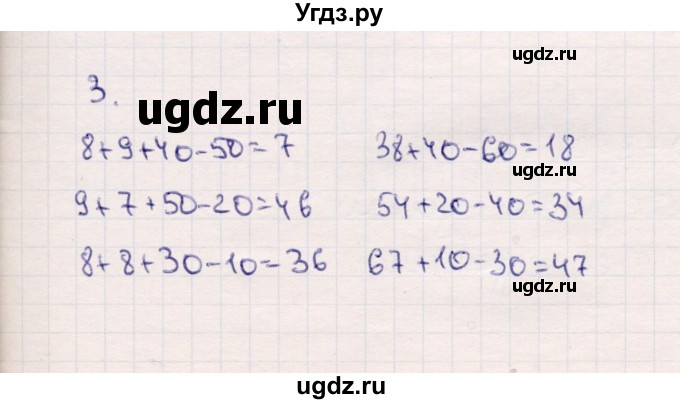 Угдз.ру
ugdz.ru
3.
ugdz.ru
8+9+40-50=7
38+40-60=18
9+7+50-20=46
54+20-40=34
8+8+30-10=36
67+10-30=47
ugdz.ru
ugdz.ru